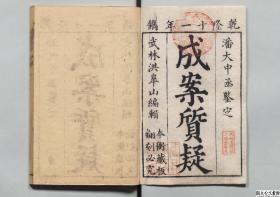 乾隆十一年鐫
潘大中丞鑒定
成案質疑
武林洪皋山編輯
本衙藏板
翻刻必究